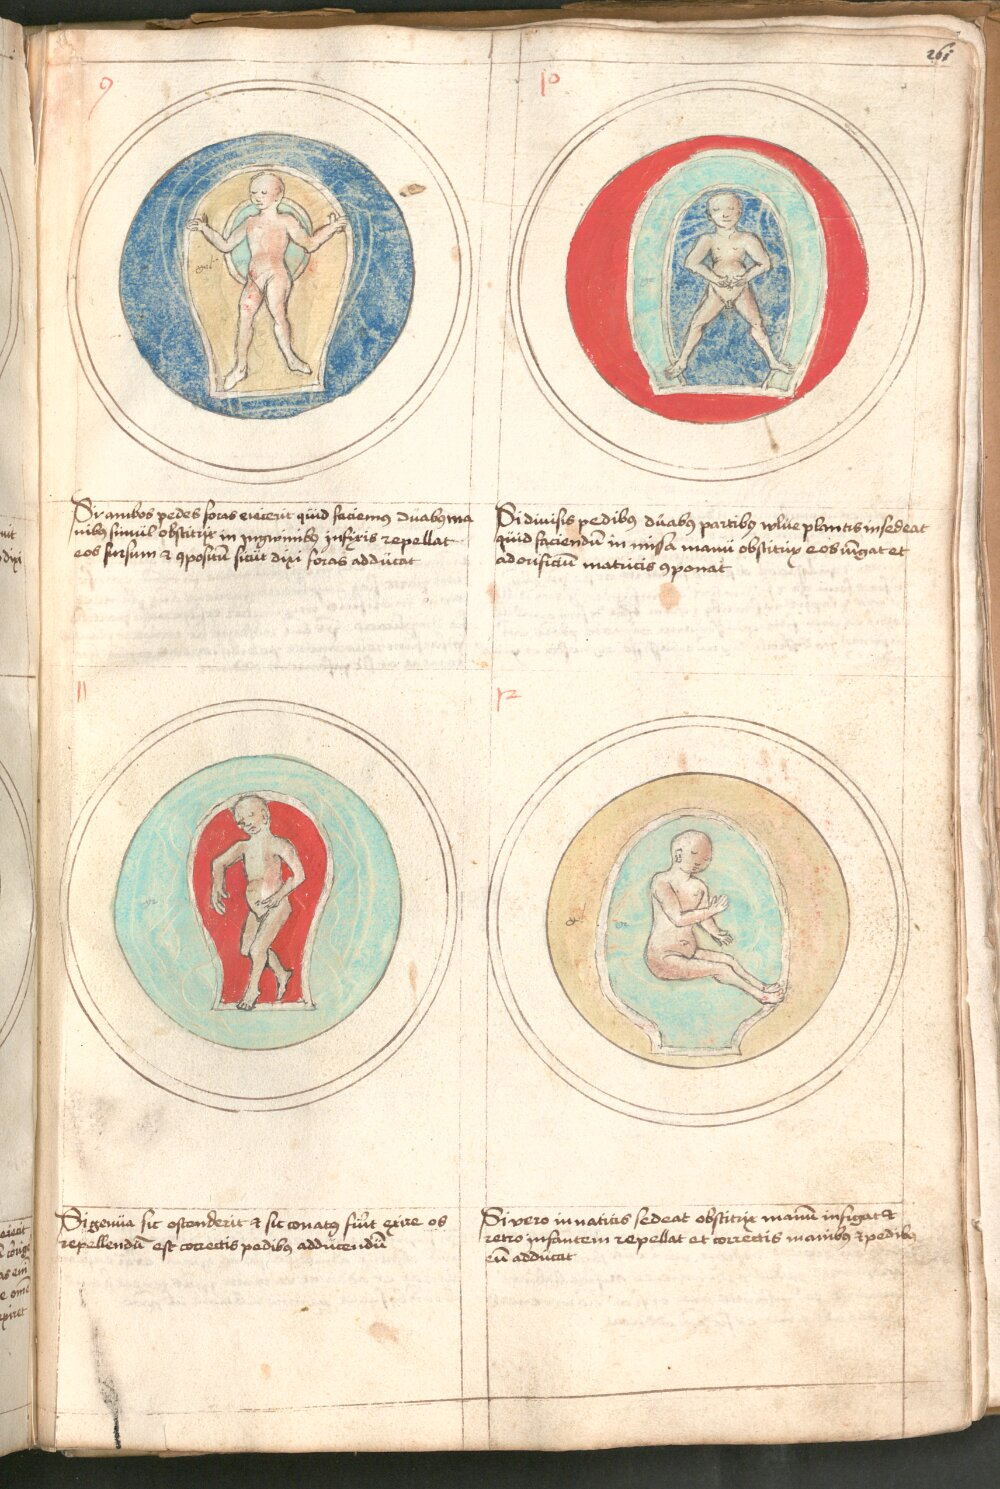 261
9
Si ambos pedes foras eiecerit quid faciemus duabus ma
nibus simul obstitrix in ingwinibus infixis repellat
eos sursum et 9positū sicut dixi foras adducat
10
Si diuisis pedibus duabus partibus vulue plantis insedeat
quid faciendū in missa manū obstitrix eos iūgat et
ad orificiū matricis 9ponat
11
Si genua sic ostenderit et sic conatus fuit exire os
repellendū est correctis pedibus adducendū
12
Si vero in naticis sedeat obstitrix manū infigat et
retro infantem repellat et correctis manibus et pedibus
eū adducat